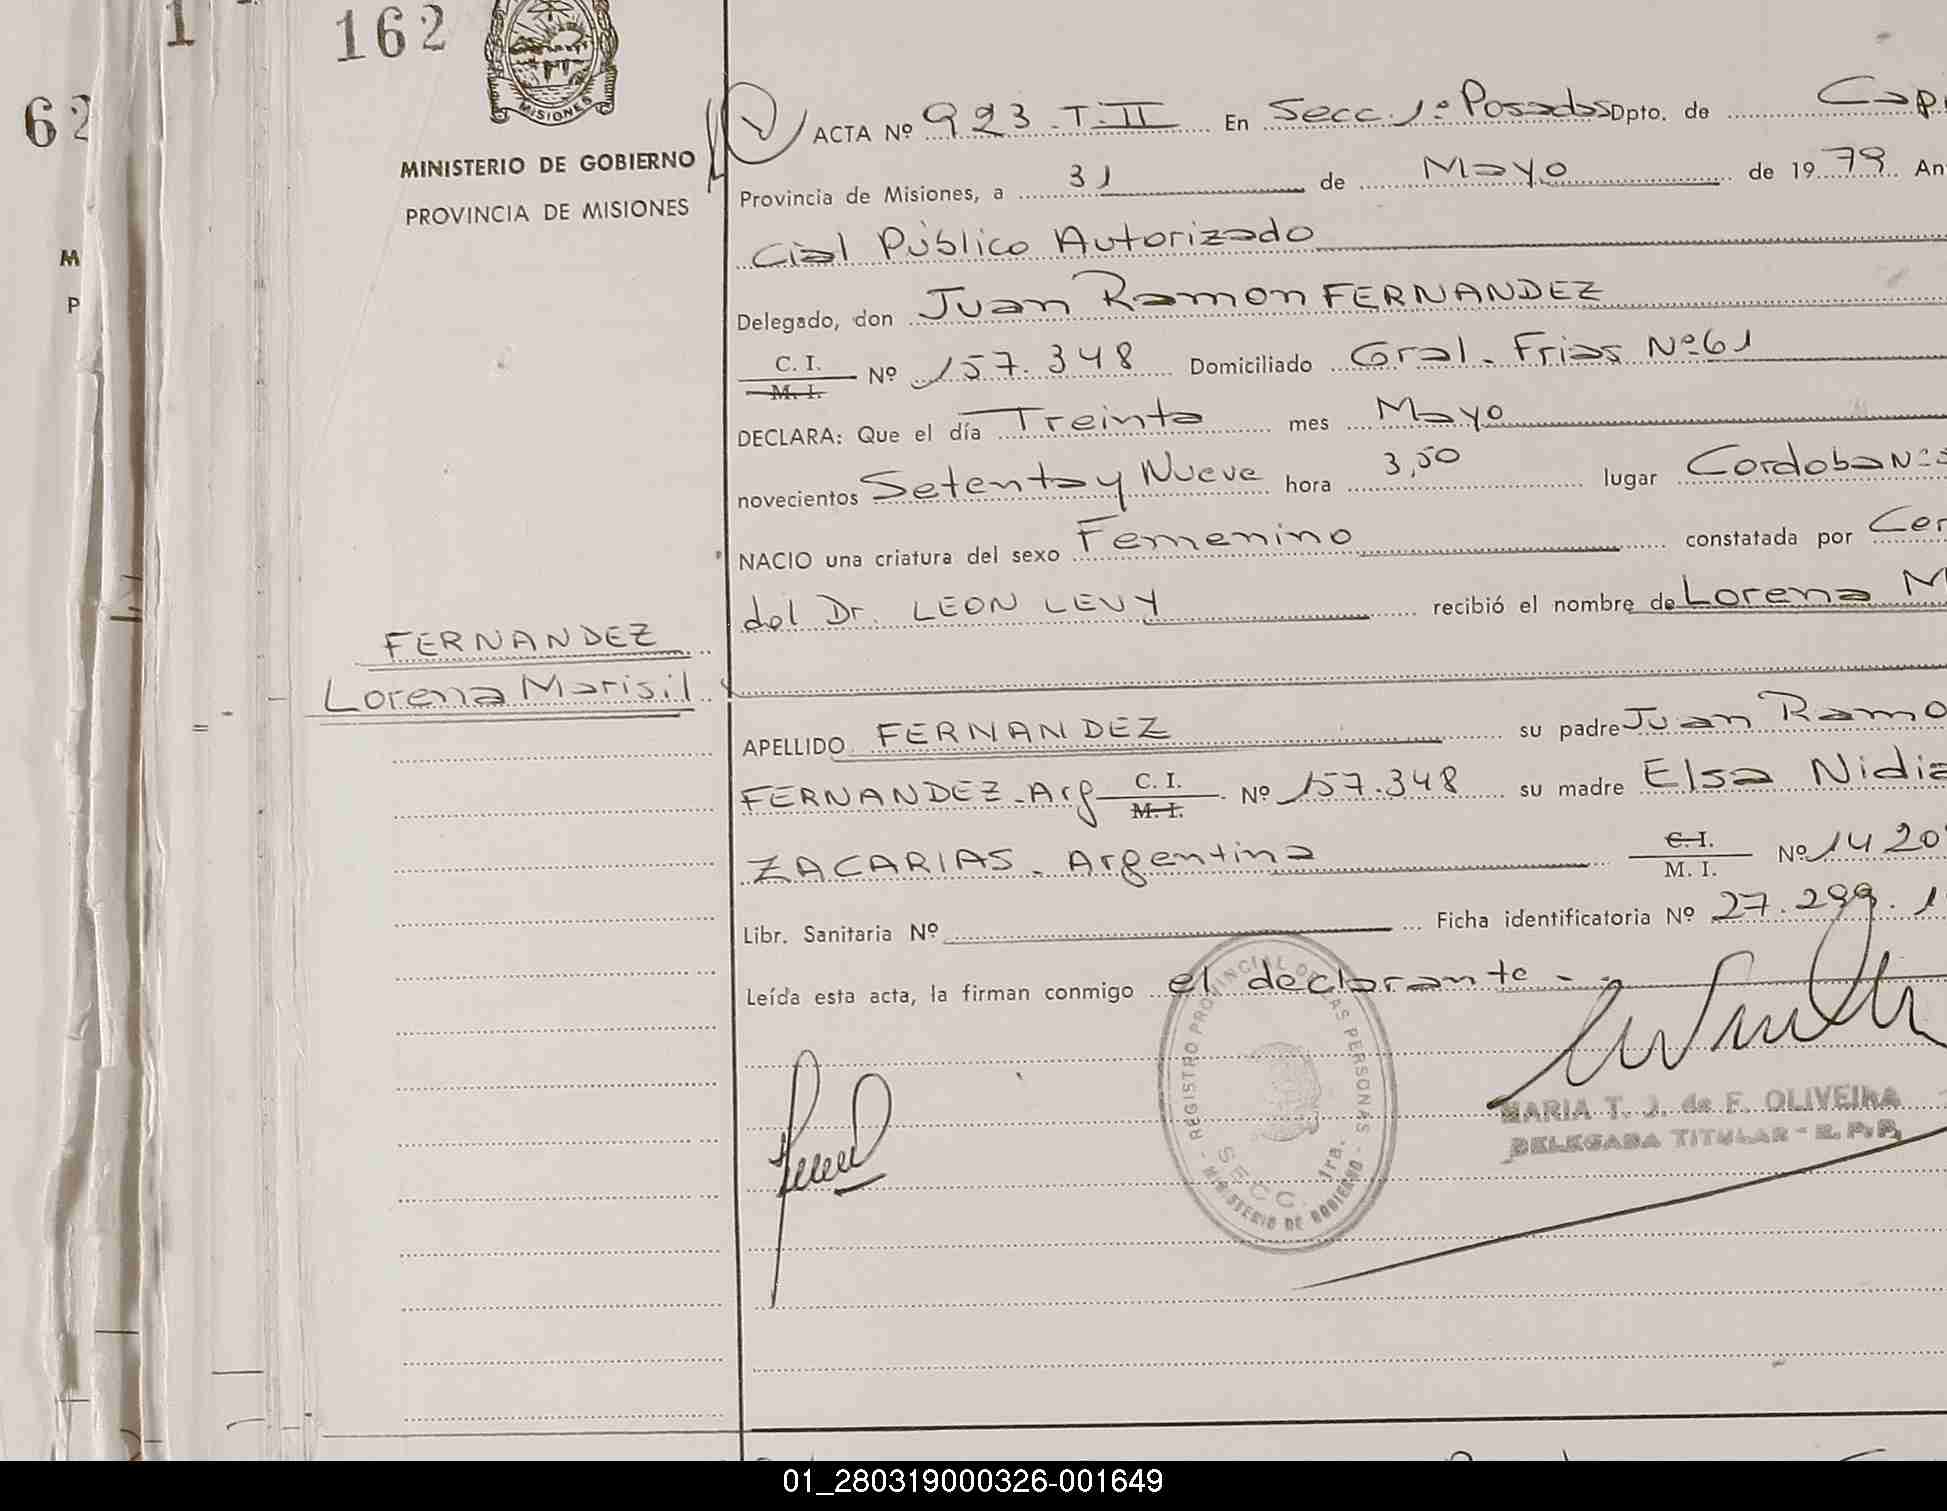 1
162
62
MISIONES
MINISTERIO DE GOBIERNO
PROVINCIA DE MISIONES
M
P
FERNANDEZ
Lorena Marisil
ACTA Nº 923.T.II En Secc. 1º Posadas Dpto. de Cap
Provincia de Misiones, a 31 de Mayo de 1979 An
cial Público Autorizado
Delegado, don Juan Ramon FERNANDEZ
C. I. Nº 157.348 Domiciliado Gral. Frias Nº 61
M. I.
DECLARA: Que el día Treinta mes Mayo
novecientos Setenta y Nueve hora 3,50 lugar Cordoba Nº
NACIO una criatura del sexo Femenino constatada por Cer
del Dr. LEON LEVY recibió el nombre de Lorena M
APELLIDO FERNANDEZ su padre Juan Ramo
FERNANDEZ - Arg C. I. Nº 157.348 su madre Elsa Nidia
M. I.
ZACARIAS - Argentina C. I. Nº 14 20
M. I.
Libr. Sanitaria Nº Ficha identificatoria Nº 27.299.1
Leída esta acta, la firman conmigo el declarante -
REGISTRO PROVINCIAL DE LAS PERSONAS
SECC. 1ra.
MINISTERIO DE GOBIERNO
MARIA T. J. de F. OLIVEIRA
DELEGADA TITULAR - R. P. P.
01_280319000326-001649